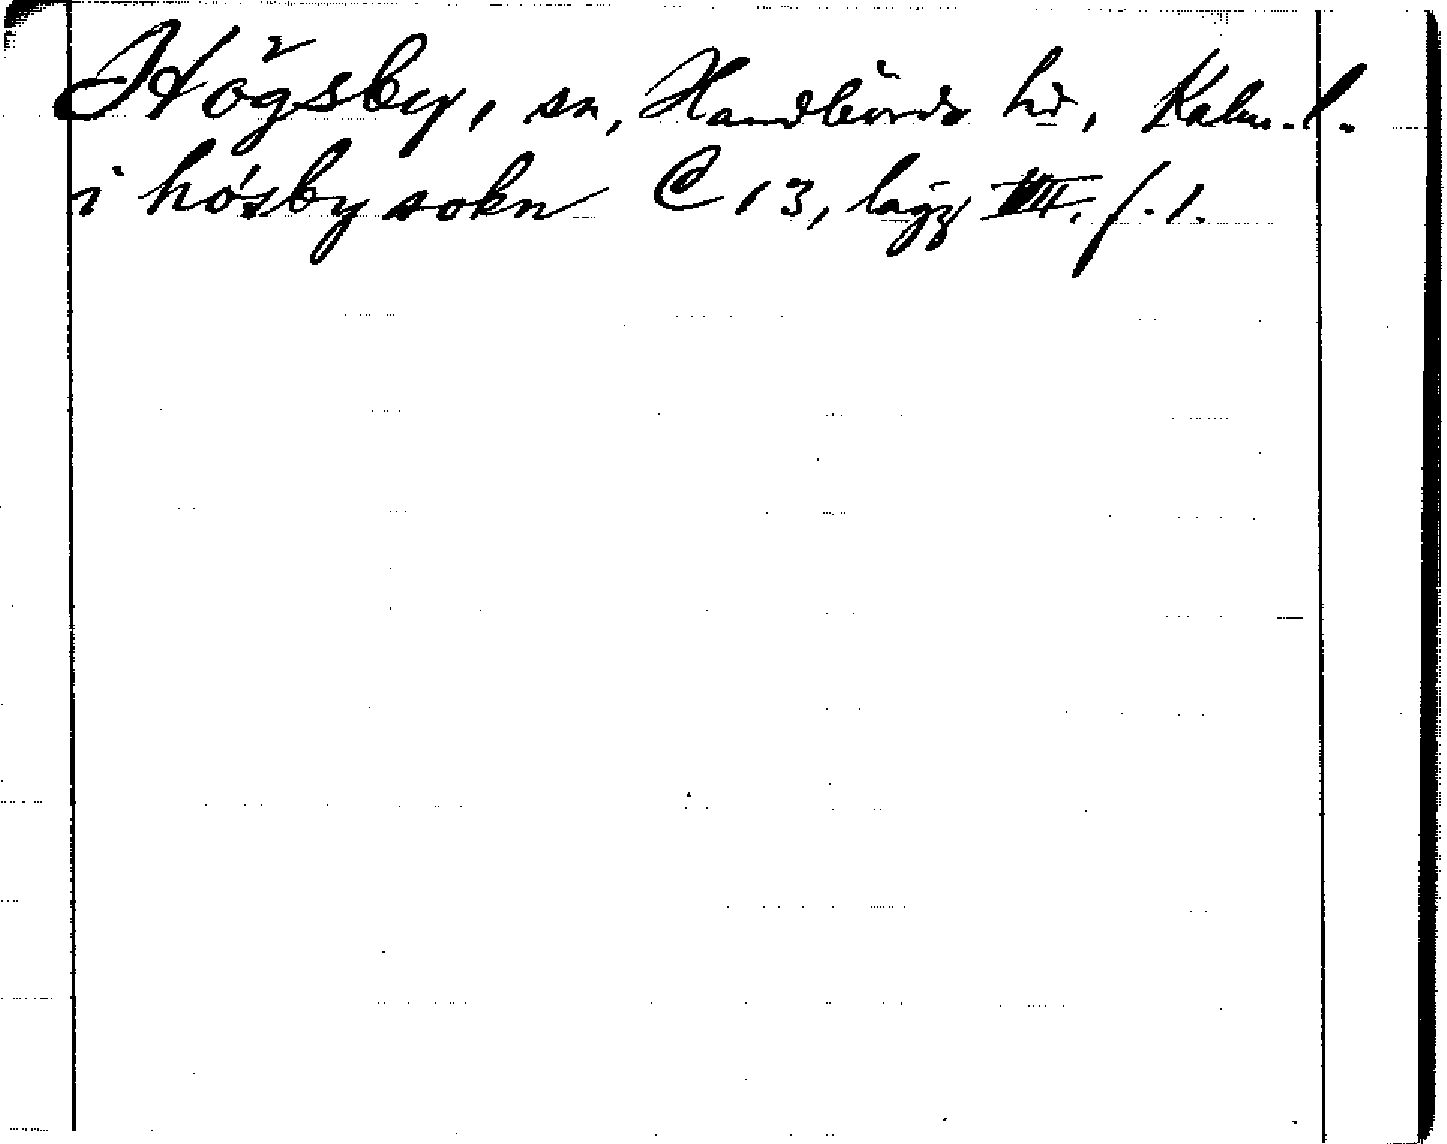 Högsby, sn, Handbörds hd, Kalm. l.
i hósby sokn C 13, lägg VII. f. 1.